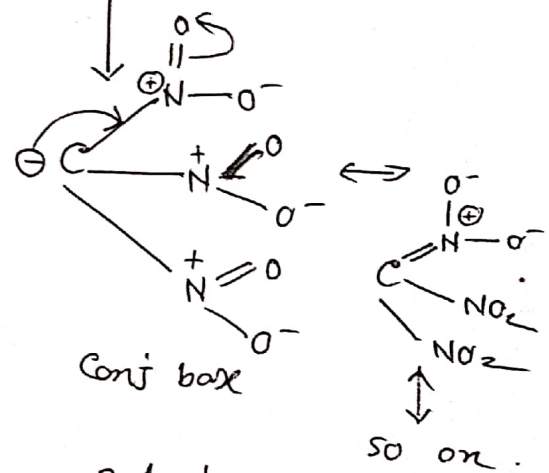 O
⊕ N — O⁻
⊖ C — N⁺ = O
O⁻
N⁺ = O
O⁻
Conj bax
O⁻
⊕
C = N — O⁻
NO₂
NO₂
so on.